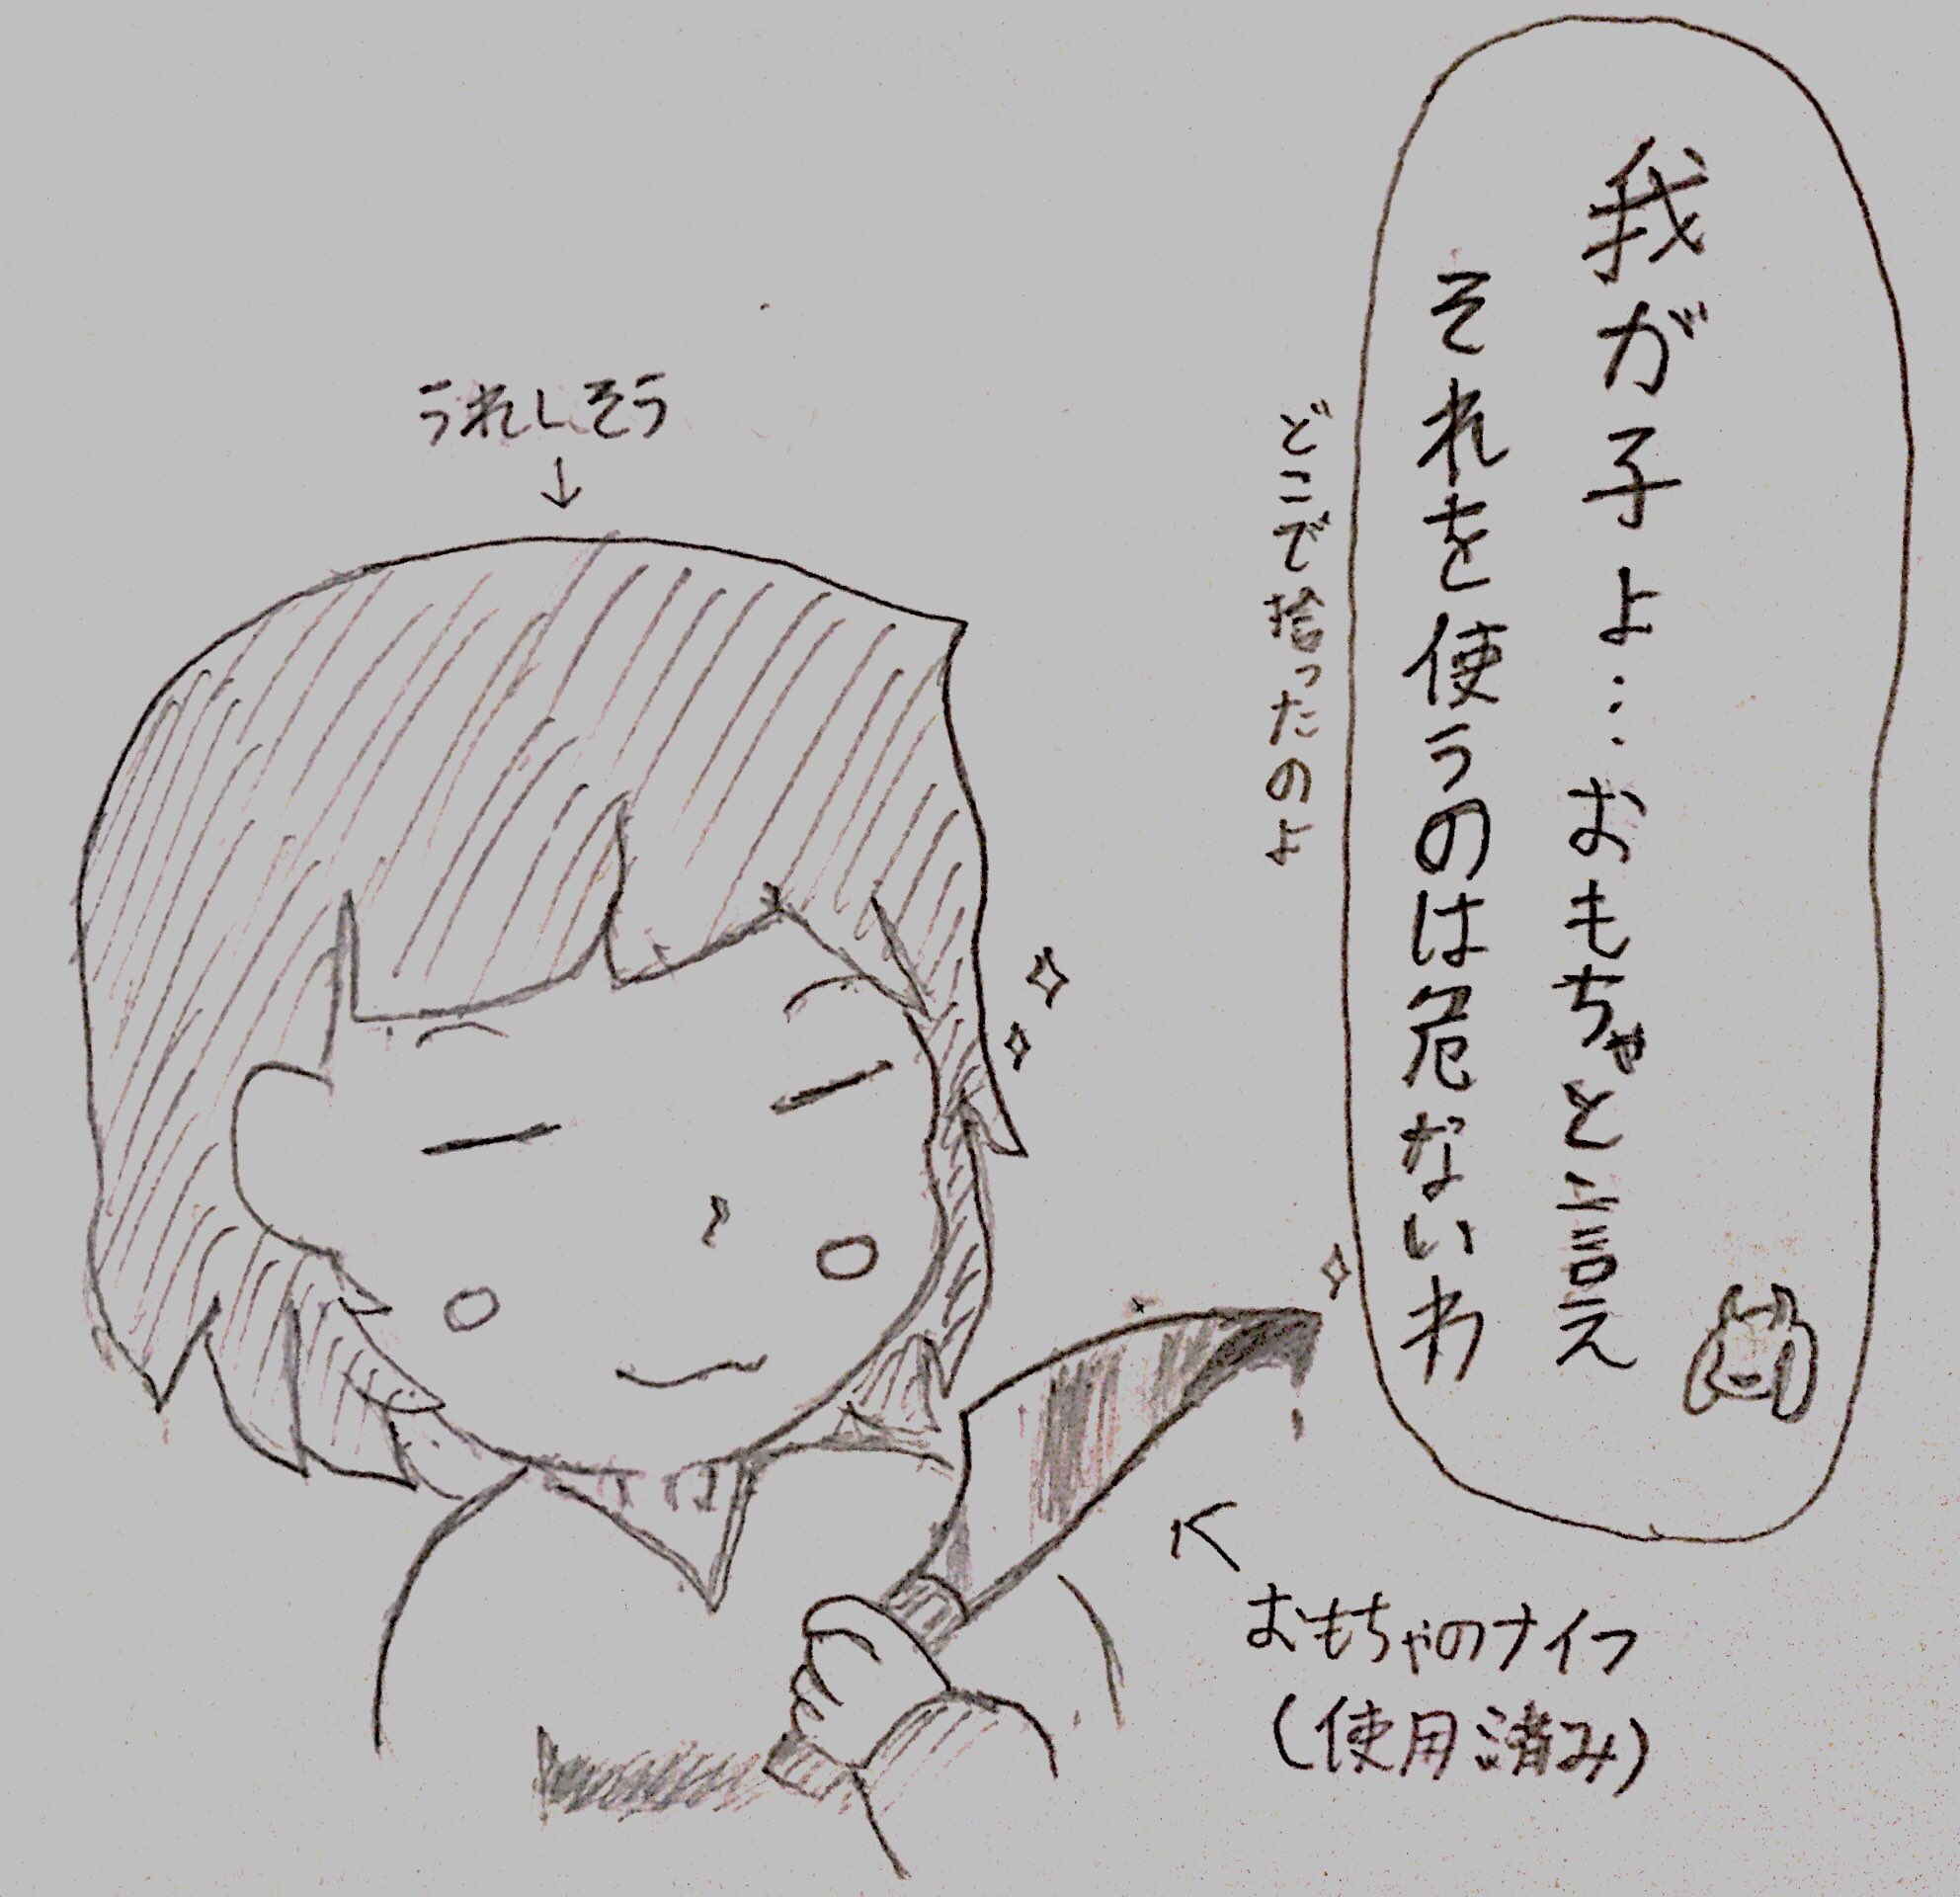 我が子よ…おもちゃと言え
それを使うのは危ないわ
どこで捨ったのよ
うれしそう
おもちゃのナイフ
(使用済み)